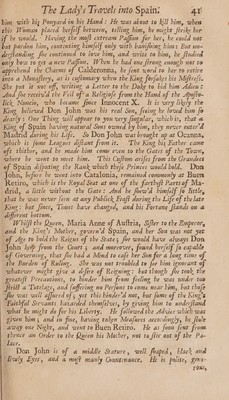 The Lady's Travels into Spain. 41
him with his Ponyard in his Hand: He was about to kill him, when
this Woman placed her self between, telling him, he might strike her
if he would. Having the most extream Passion for her, he could not
but pardon him, contenting himself only with banishing him: But un-
derstanding she continued to love him, and write to him, he studied
only how to get a new Passion. When he had one strong enough not to
apprehend the Charms of Calderonna, he sent word to her to retire
into a Monastery, as is customary when the King forsakes his Mistress.
She put it not off, writing a Letter to the Duke to bid him Adieu:
And she receiv'd the Veil of a Religious from the Hand of the Aposto-
lick Nuncio, who became since Innocent X. It is very likely the
King believed Don John was his real Son, seeing he loved him so
dearly: One Thing will appear to you very singular, which is, that a
King of Spain having natural Sons owned by him, they never enter'd
Madrid during his Life. So Don John was brought up at Ocanna,
which is some Leagues distant from it. The King his Father came
oft thither, and he made him come even to the Gates of the Town,
where he went to meet him. This Custom arises from the Grandees
of Spain disputing the Rank which these Princes would hold. Don
John, before he went into Catalonia, remained commonly at Buen
Retiro, which is the Royal Seat at one of the farthest Parts of Ma-
drid, a little without the Gate: And he show'd himself so little,
that he was never seen at any Publick Feast during the Life of the late
King: but since, Times have changed, and his Fortune stands on a
different bottom.
Whilst the Queen, Maria Anne of Austria, Sister to the Emperor,
and the King's Mother, govern'd Spain, and her Son was not yet
of Age to hold the Reigns of the State; she would have always Don
John kept from the Court; and moreover, found her self so capable
of Governing, that she had a Mind to ease her Son for a long time of
the Burden of Ruling. She was not troubled to see him ignorant of
whatever might give a desire of Reigning: but though she took the
greatest Precautions, to hinder him from feeling he was under too
strict a Tutelage, and suffering no Persons to come near him, but those
she was well assured of; yet this hinder'd not, but some of the King's
Faithful Servants hazarded themselves, by giving him to understand
what he might do for his Liberty. He followed the Advice which was
given him; and in fine, having taken Measures accordingly, he stole
away one Night, and went to Buen Retiro. He as soon sent from
thence an Order to the Queen his Mother, not to stir out of the Pa-
lace.
Don John is of a middle Stature, well shaped, black and
lively Eyes, and a most manly Countenance. He is polite, gene-
rous,